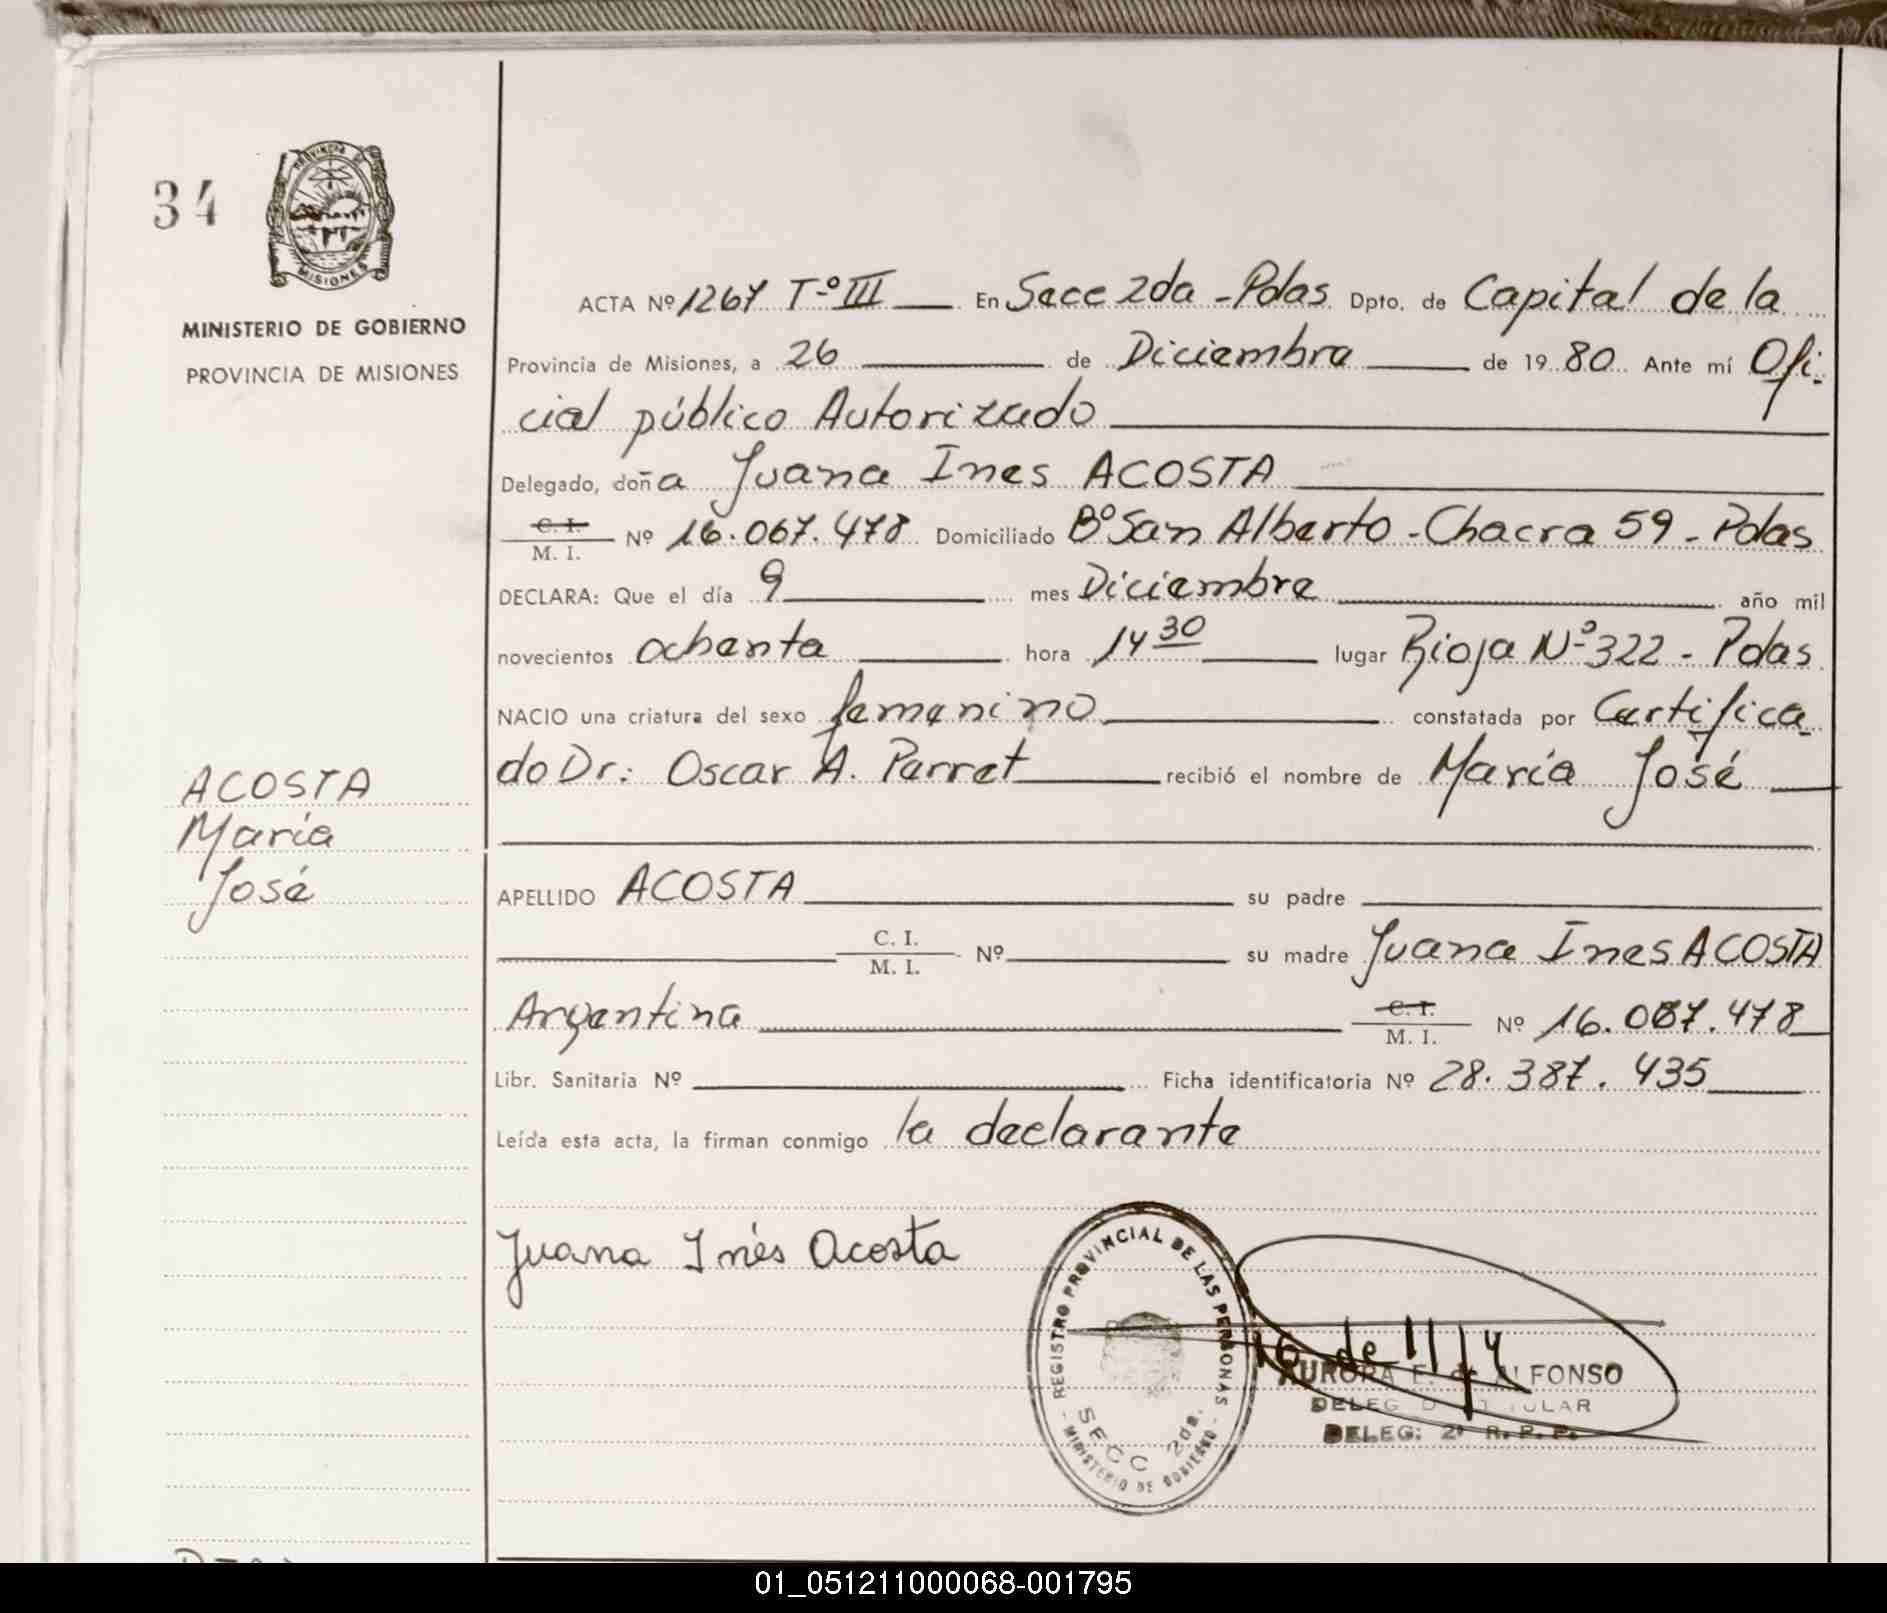 34
PROVINCIA DE
MISIONES
MINISTERIO DE GOBIERNO
PROVINCIA DE MISIONES
ACTA Nº 1267 Tº III En Secc 2da - Pdas Dpto. de Capital de la
Provincia de Misiones, a 26 de Diciembre de 19 80 Ante mí Ofi-
cial público Autorizado
Delegado, doña Juana Ines ACOSTA
C. I.
M. I. Nº 16.067.478 Domiciliado Bº San Alberto - Chacra 59 - Pdas
DECLARA: Que el día 9 mes Diciembre año mil
novecientos ochenta hora 14 30 lugar Rioja Nº 322 - Pdas
NACIO una criatura del sexo femenino constatada por Certifica-
do Dr: Oscar A. Parret recibió el nombre de María José
ACOSTA
María
José
APELLIDO ACOSTA su padre
C. I.
M. I. Nº su madre Juana Ines ACOSTA
Argentina C. I.
M. I. Nº 16.067.478
Libr. Sanitaria Nº Ficha identificatoria Nº 28.387.435
Leída esta acta, la firman conmigo la declarante
Juana Inés Acosta
REGISTRO PROVINCIAL DE LAS PERSONAS
SECC 2da.
MINISTERIO DE GOBIERNO
AURORA E. de ALFONSO
DELEGADA TITULAR
DELEG: 2ª R. P. P.
01_051211000068-001795